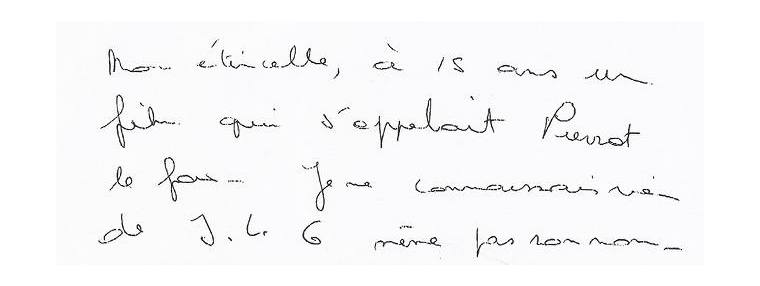 Mon étincelle, à 15 ans un
film qui s'appelait Pierrot
le fou - Je ne connaissais rien
de J. L. G même pas son nom -